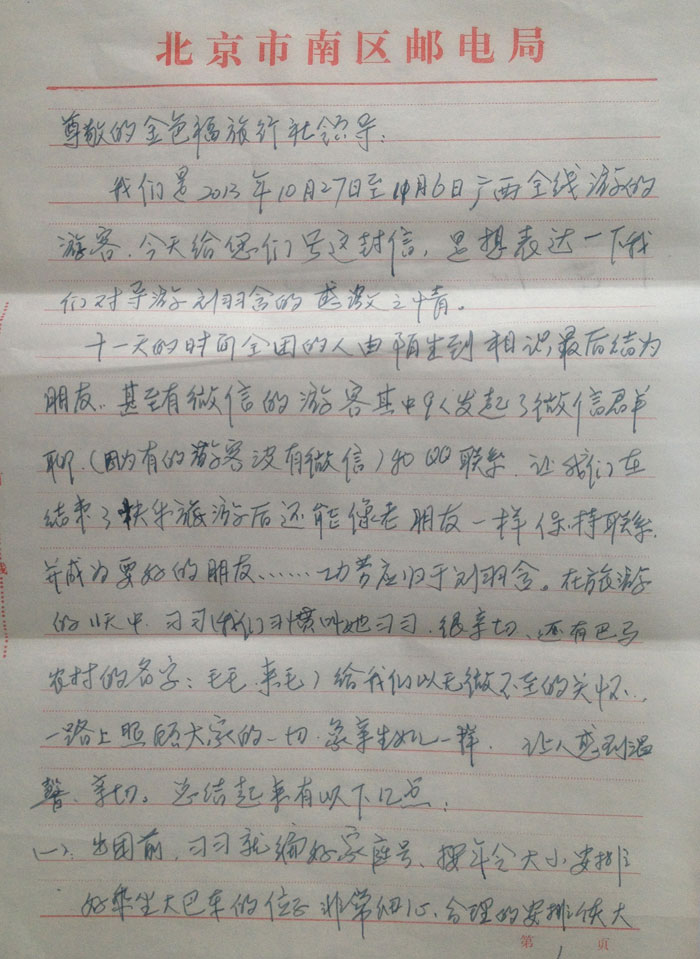 北京市南区邮电局
尊敬的金色福旅行社领导:
我们是2013年10月27日至11月6日广西全线游的
游客,今天给您们写这封信,是想表达一下我
们对导游刘羽含的感激之情。
十一天的时间全团的人由陌生到相识最后结为
朋友,甚至有微信的游客其中9人发起了微信君羊
聊,(因为有的游客没有微信)和QQ联系,让我们在
结束了快乐旅游后还能像老朋友一样保持联系,
并成为要好的朋友……功劳应归于刘羽含。在旅游
的11天中,习习(我们习惯叫她习习,很亲切,还有巴马
农村的名字:毛毛,来毛)给我们以无微不至的关怀,
一路上照顾大家的一切,象亲生女儿一样,让人感到温
馨、亲切。总结起来有以下几点:
(一)、出团前,习习就编好家庭号、按年令大小安排
好乘坐大巴车的位子非常细心,合理的安排使大
第1页